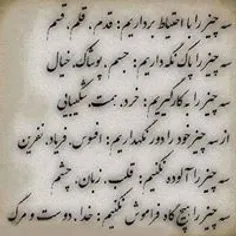 سه چیز را با احتیاط برداریم: قدم، قلم، قسم
سه چیز را پاک نگه‌داریم: جسم، پوشاک، خیال
سه چیز را به کار گیریم: خرد، همت، شکیبایی
از سه چیز خود را دور نگهداریم: افسوس، فریاد، نفرین
سه چیز را آلوده نکنیم: قلب، زبان، چشم
سه چیز را هیچ گاه فراموش نکنیم: خدا، دوست و مرگ